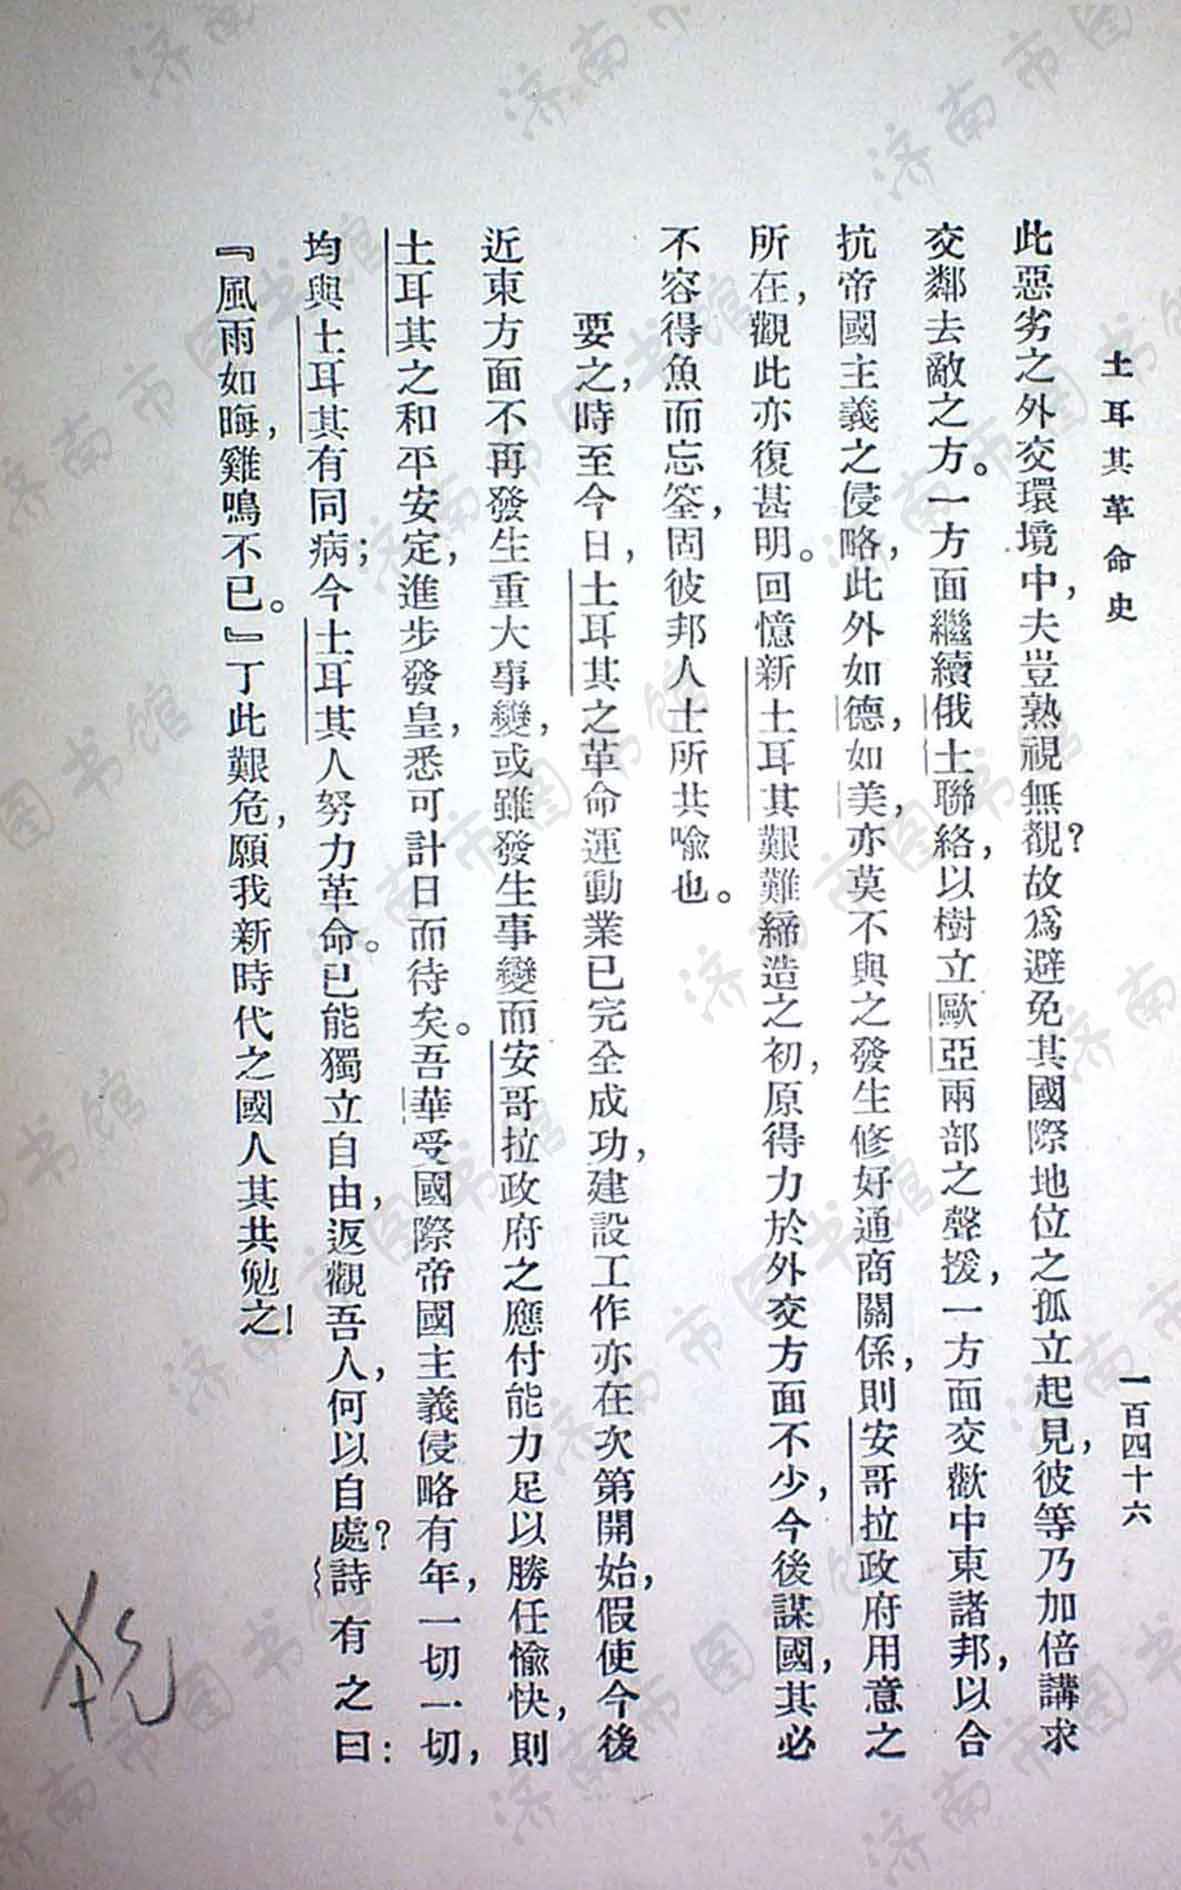 土耳其革命史
一百四十六
此惡劣之外交環境中，夫豈熟視無覩？故爲避免其國際地位之孤立起見，彼等乃加倍講求
交鄰去敵之方。一方面繼續俄土聯絡，以樹立歐亞兩部之聲援，一方面交歡中東諸邦，以合
抗帝國主義之侵略，此外如德，如美，亦莫不與之發生修好通商關係，則安哥拉政府用意之
所在，觀此亦復甚明。回憶新土耳其艱難締造之初，原得力於外交方面不少，今後謀國，其必
不容得魚而忘筌，固彼邦人士所共喩也。
要之，時至今日，土耳其之革命運動業已完全成功，建設工作亦在次第開始，假使今後
近東方面不再發生重大事變，或雖發生事變而安哥拉政府之應付能力足以勝任愉快，則
土耳其之和平安定，進步發皇，悉可計日而待矣。吾華受國際帝國主義侵略有年，一切一切，
均與土耳其有同病；今土耳其人努力革命。已能獨立自由，返觀吾人，何以自處？詩有之曰：
『風雨如晦，雞鳴不已。』丁此艱危，願我新時代之國人其共勉之！
济南市图书馆